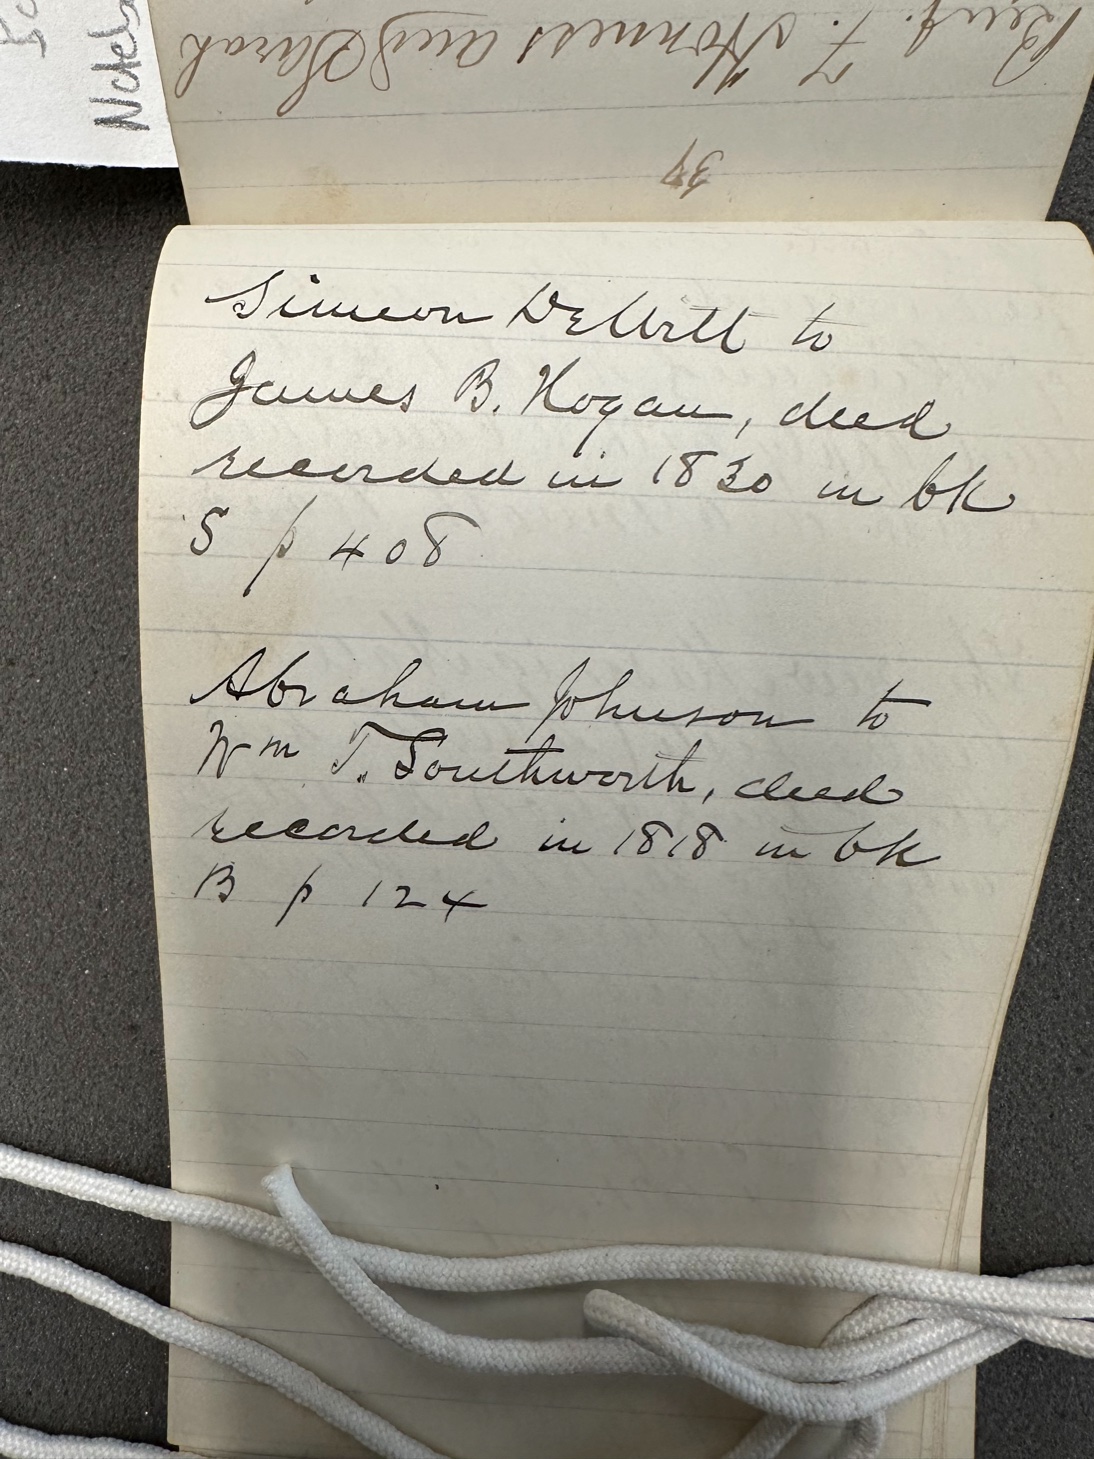 Benj. F. Horness and Sarah
34
Simeon DeWitt to
James B. Hogan, deed
recorded in 1830 in bk
S p 408
Abraham Johnson to
Wm T. Southworth, deed
recorded in 1818 in bk
B p 124